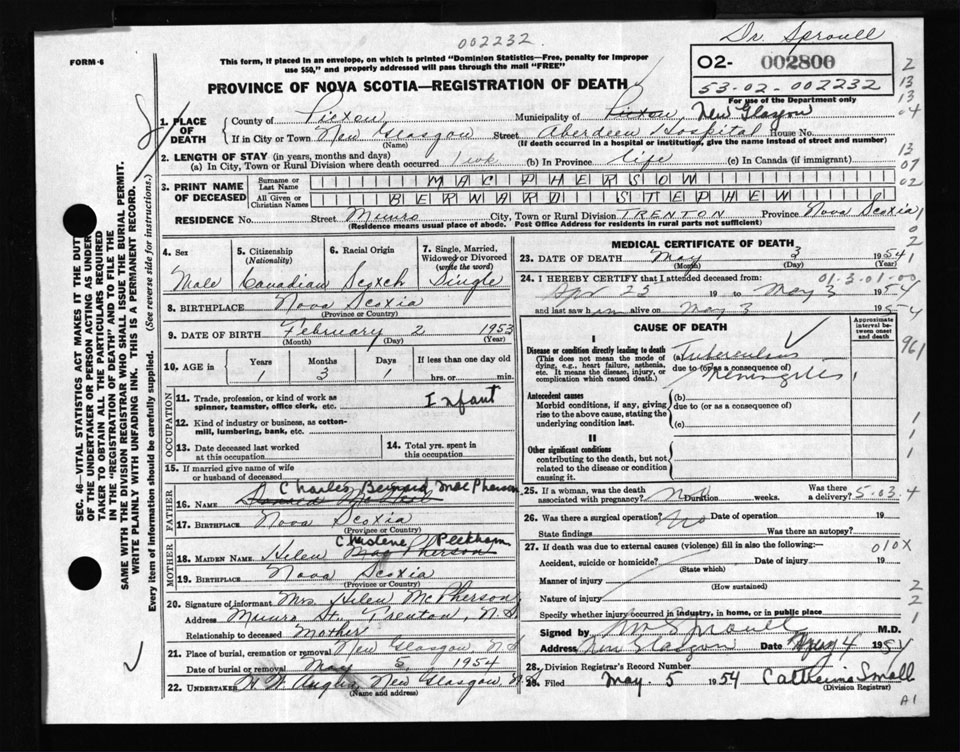 Dr. Sproull
002232.
FORM-6
This form, if placed in an envelope, on which is printed "Dominion Statistics—Free, penalty for improper
use $50," and properly addressed will pass through the mail "FREE"
02- 002800
53-02-002232
For use of the Department only
PROVINCE OF NOVA SCOTIA—REGISTRATION OF DEATH
1. PLACE OF DEATH
County of Pictou Municipality of Pictou, New Glasgow
If in City or Town New Glasgow Street Aberdeen Hospital House No.
(Name) (If death occurred in a hospital or institution, give the name instead of street and number)
2. LENGTH OF STAY (in years, months and days)
(a) In City, Town or Rural Division where death occurred 1 wk (b) In Province life (c) In Canada (if immigrant)
3. PRINT NAME OF DECEASED
Surname or Last Name MAC PHERSON
All Given or Christian Names BERNARD STEPHEN
RESIDENCE No. Street Munro City, Town or Rural Division TRENTON Province Nova Scotia
(Residence means usual place of abode. Post Office Address for residents in rural parts not sufficient)
4. Sex Male
5. Citizenship (Nationality) Canadian
6. Racial Origin Scotch
7. Single, Married, Widowed or Divorced (write the word) Single
8. BIRTHPLACE Nova Scotia
(Province or Country)
9. DATE OF BIRTH February 2 1953
(Month) (Day) (Year)
10. AGE in Years Months Days If less than one day old
1 3 1 hrs. or min.
OCCUPATION
11. Trade, profession or kind of work as spinner, teamster, office clerk, etc. Infant
12. Kind of industry or business, as cotton-mill, lumbering, bank, etc.
13. Date deceased last worked at this occupation
14. Total yrs. spent in this occupation
15. If married give name of wife or husband of deceased
FATHER
Charles Bernard MacPherson
16. NAME
17. BIRTHPLACE Nova Scotia
(Province or Country)
MOTHER
Charlene Peckham
18. MAIDEN NAME Helen MacPherson
19. BIRTHPLACE Nova Scotia
(Province or Country)
20. Signature of informant Mrs. Helen McPherson
Address Munro St., Trenton, N.S.
Relationship to deceased Mother
21. Place of burial, cremation or removal New Glasgow N.S
Date of burial or removal May 5, 1954
22. UNDERTAKER H. W. Angus, New Glasgow, N.S
(Name and address)
MEDICAL CERTIFICATE OF DEATH
23. DATE OF DEATH May 3 1954
(Month) (Day) (Year)
24. I HEREBY CERTIFY that I attended deceased from 01-3-01-00
Apr 23 19 to May 3 1954
and last saw him alive on May 3 1954
CAUSE OF DEATH
Approximate interval between onset and death
I
Disease or condition directly leading to death (a) Tuberculous
(This does not mean the mode of dying, e.g., heart failure, asthenia, etc. It means the disease, injury, or complication which caused death.)
due to (or as a consequence of)
Meningitis
Antecedent causes
Morbid conditions, if any, giving rise to the above cause, stating the underlying condition last.
(b)
due to (or as a consequence of)
(c)
II
Other significant conditions
contributing to the death, but not related to the disease or condition causing it.
25. If a woman, was the death associated with pregnancy? No Duration weeks. Was there a delivery? 5-03.4
26. Was there a surgical operation? No Date of operation 19
State findings Was there an autopsy?
27. If death was due to external causes (violence) fill in also the following:— 010X
Accident, suicide or homicide? Date of injury 19
(State which)
Manner of injury
(How sustained)
Nature of injury
Specify whether injury occurred in industry, in home, or in public place
Signed by Sproull M.D.
Address New Glasgow Date May 4 1954
28. Division Registrar's Record Number
29. Filed May 5 1954 Catherine Small
(Division Registrar)
A1
SEC. 46—VITAL STATISTICS ACT MAKES IT THE DUTY
OF THE UNDERTAKER OR PERSON ACTING AS UNDER-
TAKER TO OBTAIN ALL THE PARTICULARS REQUIRED
IN THE "REGISTRATION OF DEATH" AND TO FILE THE
SAME WITH THE DIVISION REGISTRAR WHO SHALL ISSUE THE BURIAL PERMIT.
WRITE PLAINLY WITH UNFADING INK. THIS IS A PERMANENT RECORD.
Every item of information should be carefully supplied. (See reverse side for instructions.)
2
13
13
04
13
07
02
1
0
2
1
961
1
1
1
2
2
1